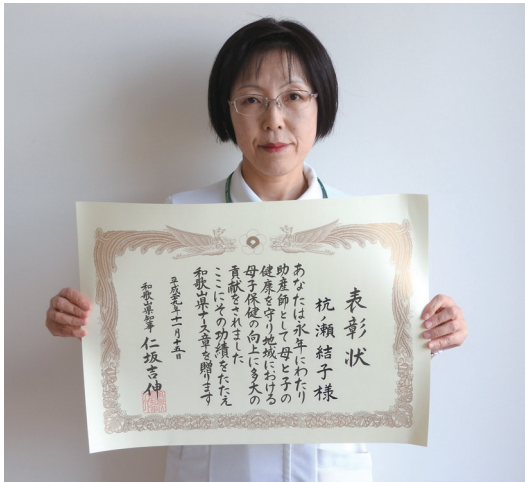 表彰状
杭ノ瀬 結子様
あなたは永年にわたり
助産師として母と子の
健康を守り地域における
母子保健の向上に多大の
貢献をされました
ここにその功績をたたえ
和歌山県ナース章を贈ります
平成二十九年十一月十五日
和歌山県知事 仁坂吉伸